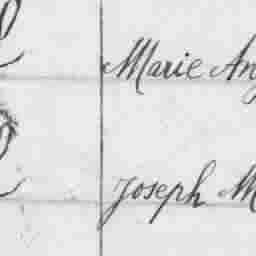 Marie Ang
Joseph M